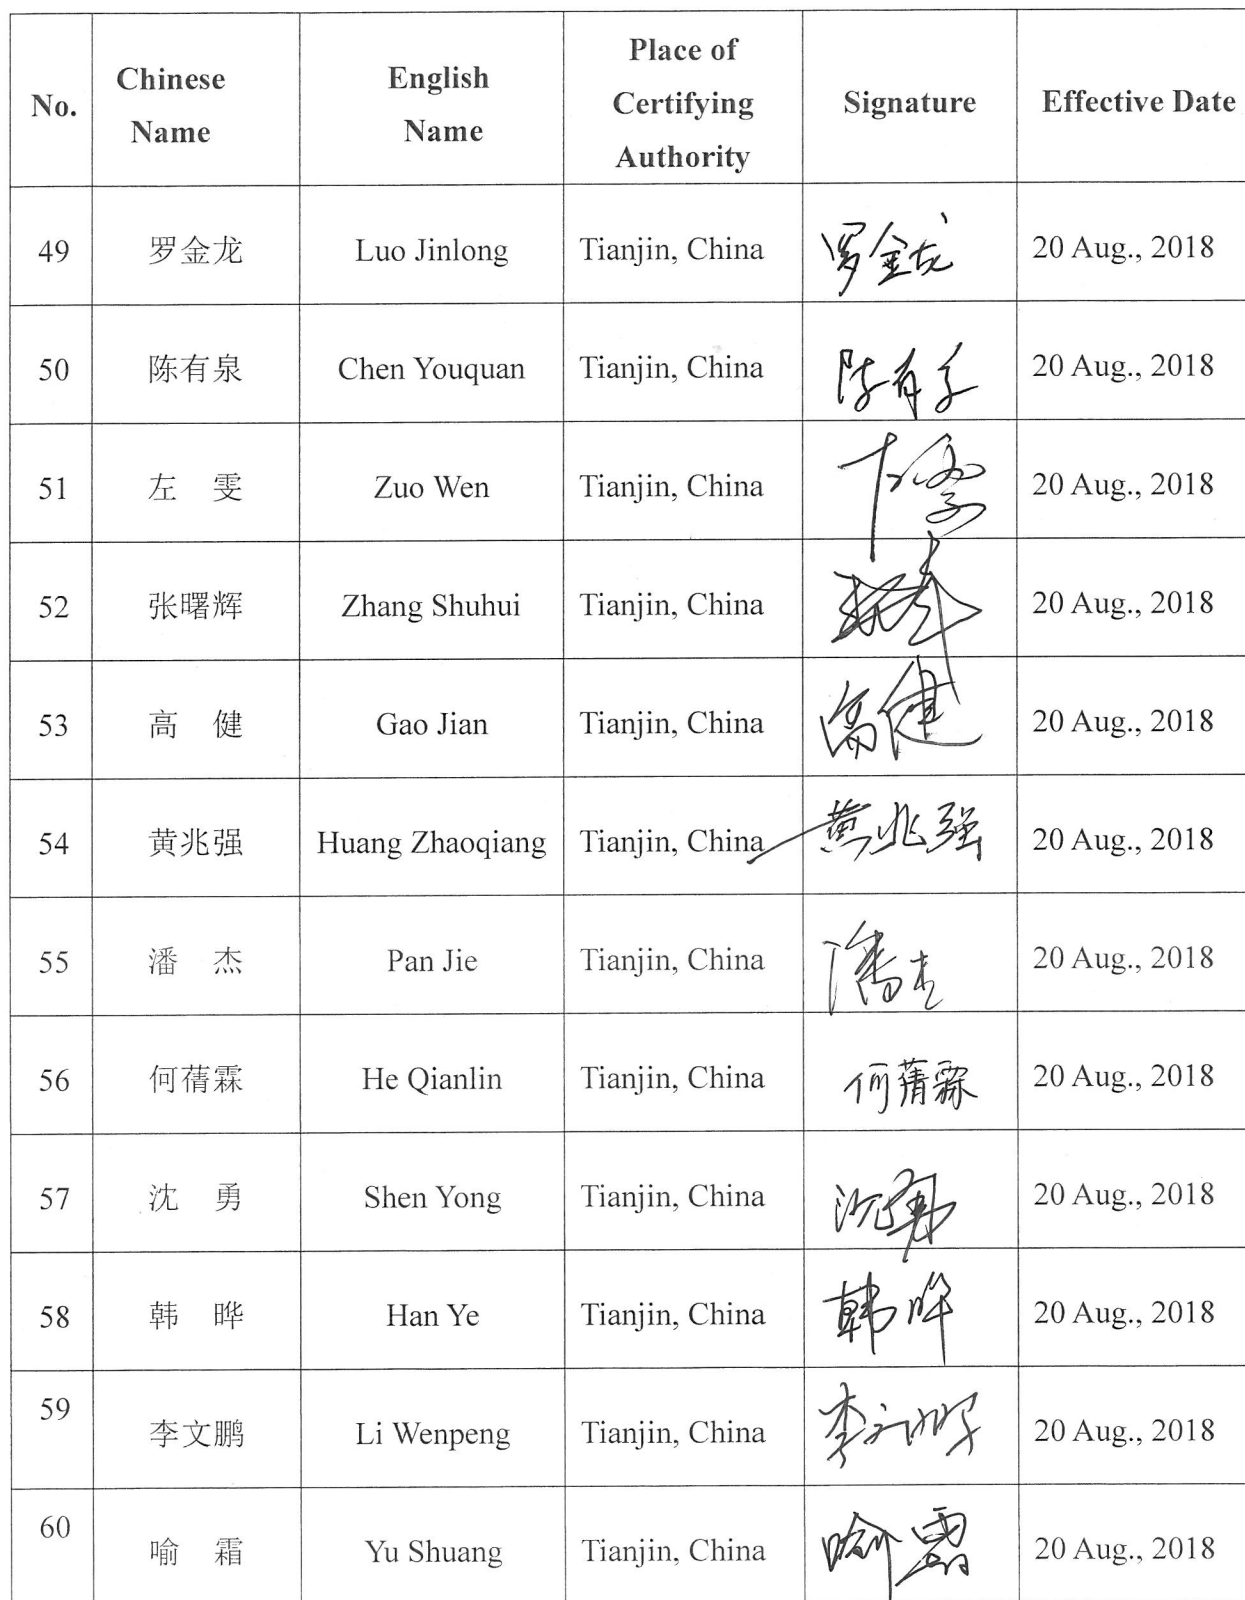 No. Chinese Name English Name Place of Certifying Authority Signature Effective Date
49 罗金龙 Luo Jinlong Tianjin, China 罗金龙 20 Aug., 2018
50 陈有泉 Chen Youquan Tianjin, China 陈有泉 20 Aug., 2018
51 左 雯 Zuo Wen Tianjin, China 左雯 20 Aug., 2018
52 张曙辉 Zhang Shuhui Tianjin, China 20 Aug., 2018
53 高 健 Gao Jian Tianjin, China 高健 20 Aug., 2018
54 黄兆强 Huang Zhaoqiang Tianjin, China 黄兆强 20 Aug., 2018
55 潘 杰 Pan Jie Tianjin, China 潘杰 20 Aug., 2018
56 何蒨霖 He Qianlin Tianjin, China 何蒨霖 20 Aug., 2018
57 沈 勇 Shen Yong Tianjin, China 沈勇 20 Aug., 2018
58 韩 晔 Han Ye Tianjin, China 韩晔 20 Aug., 2018
59 李文鹏 Li Wenpeng Tianjin, China 李文鹏 20 Aug., 2018
60 喻 霜 Yu Shuang Tianjin, China 喻霜 20 Aug., 2018